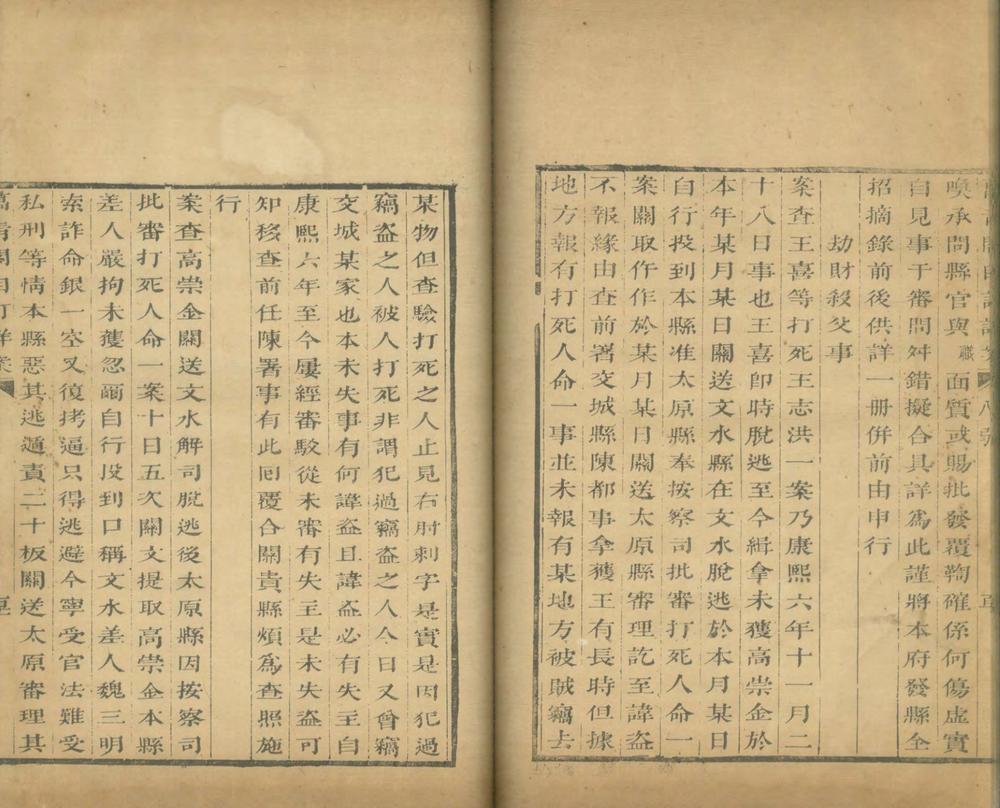 喚承問縣官與職面質或賜批發覆鞫確係何傷虛實
自見事干審問舛錯擬合具詳爲此謹將本府發縣全
招摘錄前後供詳一冊併前由申行
劫財殺父事
案查王喜等打死王志洪一案乃康熙六年十一月二
十八日事也王喜卽時脫逃至今緝拿未獲高崇金於
本年某月某日關送文水縣在文水脫逃於本月某日
自行投到本縣准太原縣奉按察司批審打死人命一
案關取仵作於某月某日關送太原縣審理訖至諱盗
不報緣由查前署交城縣陳都事拿獲王有長時但據
地方報有打死人命一事並未報有某地方被賊竊去
某物但查驗打死之人止見右肘刺字是實是因犯過
竊盗之人被人打死非謂犯過竊盗之人今日又曾竊
交城某家也本未失事有何諱盗且諱盗必有失主自
康熙六年至今屢經審駁從未審有失主是未失盗可
知移查前任陳署事有此囘覆合關貴縣煩爲查照施
行
案查高崇金關送文水解司脫逃後太原縣因按察司
批審打死人命一案十日五次關文提取高崇金本縣
差人嚴拘未獲忽爾自行投到口稱文水差人魏三明
索詐命銀一空又復拷逼只得逃避今寧受官法難受
私刑等情本縣惡其逃遁責二十板關送太原審理其